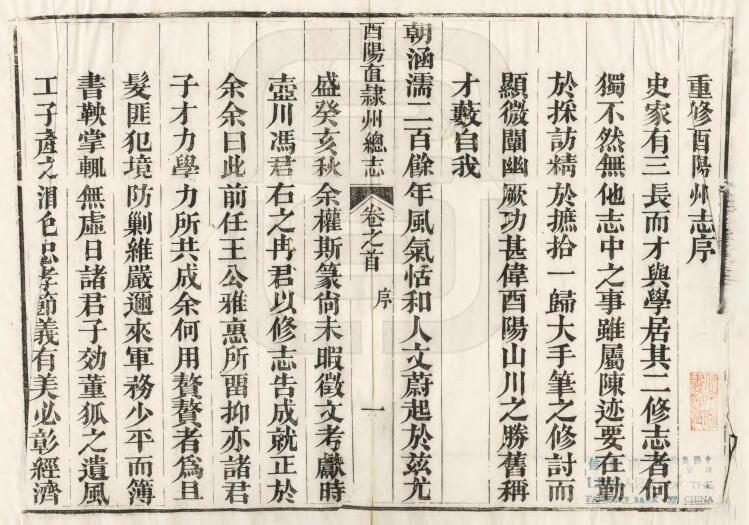 重修酉陽州志序
史家有三長而才與學居其二修志者何
獨不然無他志中之事雖屬陳迹要在勤
於採訪精於摭拾一歸大手筆之修討而
顯微闡幽厥功甚偉酉陽山川之勝舊稱
才藪自我
朝涵濡二百餘年風氣恬和人文蔚起於兹尤
酉陽直隷州總志 卷之首 序 一
盛癸亥秋余權斯篆尙未暇徵文考獻時
壺川馮君右之冉君以修志告成就正於
余余曰此前任王公雅惠所畱抑亦諸君
子才力學力所共成余何用贅贅者爲且
髮匪犯境防剿維嚴邇來軍務少平而簿
書鞅掌輒無虛日諸君子効董狐之遺風
工子產之潤色忠孝節義有美必彰經濟
OF THE
OF CHINA